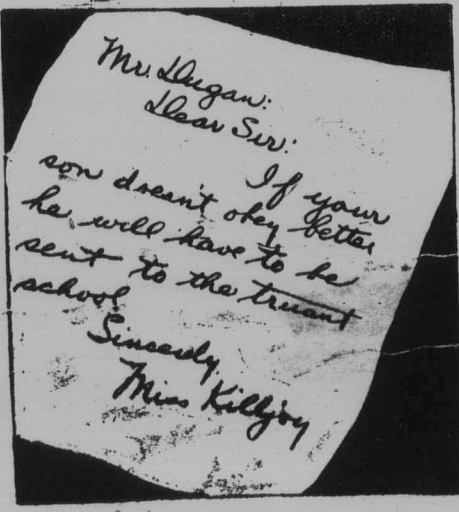 Mr. Dugan:
Dear Sir:
If your
son doesn't obey better
he will have to be
sent to the truant
school.
Sincerely
Miss Killjoy